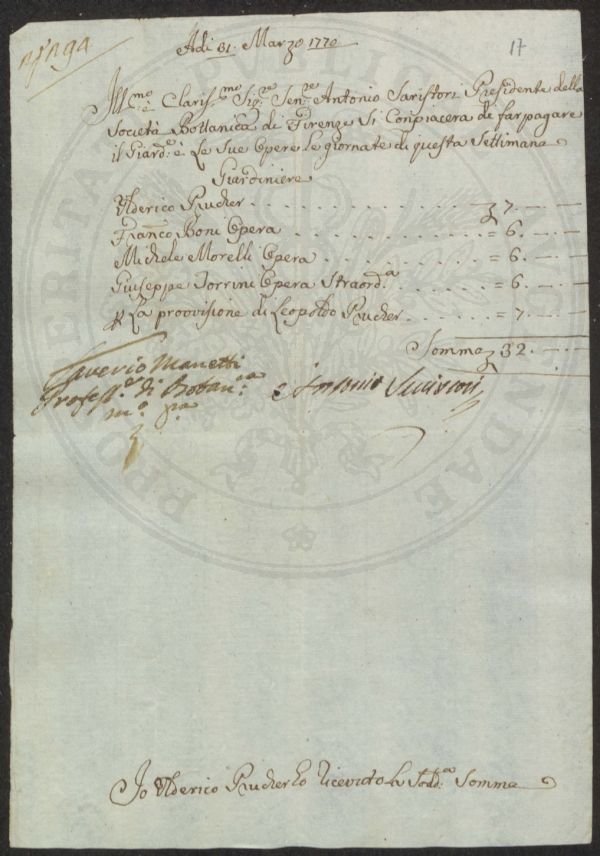 17
Adi 31. Marzo 1770
Ill.mo e Clariss.mo Sig.re Sen.re Antonio Saristori Presidente della
Società Bottanica di Firenze Si Conpiacera di far pagare
il Giard.e è Le Sue Opere le giornate di questa Settimana
Giardiniere
Ulderico Prucher . . . . . . . . . . 7. — —
Franco Boni Opera . . . . . . . . . = 6. — —
Michele Morelli Opera . . . . . . . = 6. — —
Giuseppe Torrini Opera Straord.a . . . . = 6. — —
La provvisione di Leopoldo Prucher . . . . = 7. — —
Somma 32. — —
Saverio Manetti
Profess.e di Botan.ca
m.o p.a
Antonio
Io Ulderico Prucher ho Ricevuto la Sodd.a Somma
PROSPERITATI PUBLICAE AUGENDAE